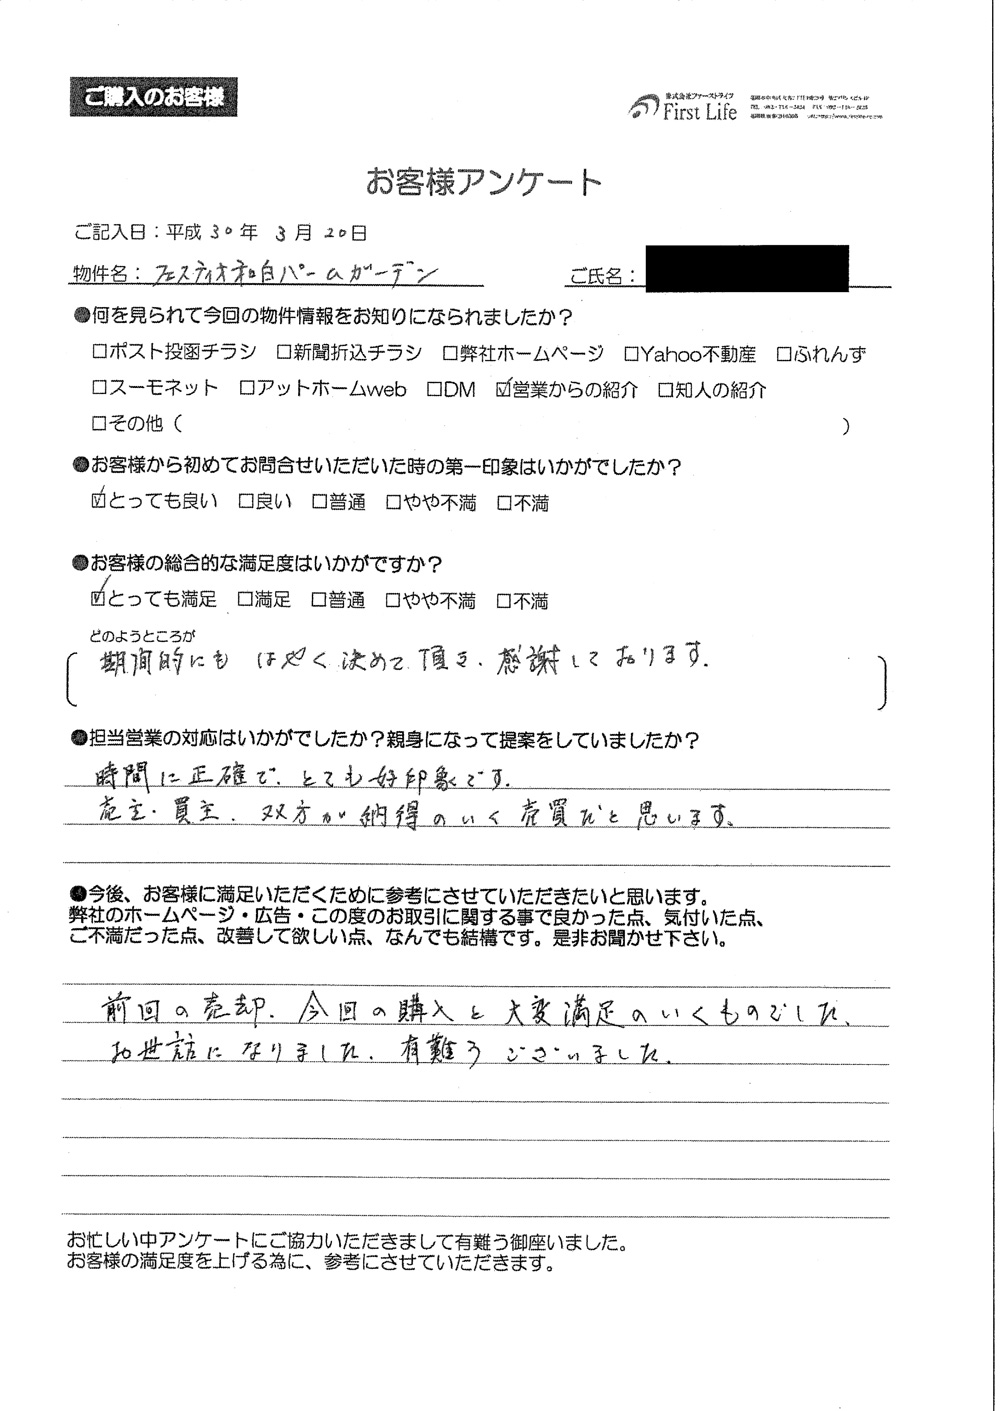 ご購入のお客様
株式会社ファーストライフ
First Life
お客様アンケート
ご記入日：平成 30 年 3 月 20 日
物件名：フェスティオ和白パームガーデン ご氏名：
●何を見られて今回の物件情報をお知りになられましたか？
□ポスト投函チラシ □新聞折込チラシ □弊社ホームページ □Yahoo不動産 □ふれんず
□スーモネット □アットホームweb □DM ☑営業からの紹介 □知人の紹介
□その他（ ）
●お客様から初めてお問合せいただいた時の第一印象はいかがでしたか？
☑とっても良い □良い □普通 □やや不満 □不満
●お客様の総合的な満足度はいかがですか？
☑とっても満足 □満足 □普通 □やや不満 □不満
どのようところが
期間的にも はやく決めて頂き、感謝しております。
●担当営業の対応はいかがでしたか？親身になって提案をしていましたか？
時間に正確で、とても好印象です。
売主・買主、双方が納得のいく売買だと思います。
●今後、お客様に満足いただくために参考にさせていただきたいと思います。
弊社のホームページ・広告・この度のお取引に関する事で良かった点、気付いた点、
ご不満だった点、改善して欲しい点、なんでも結構です。是非お聞かせ下さい。
前回の売却、今回の購入と大変満足のいくものでした、
お世話になりました、有難うございました。
お忙しい中アンケートにご協力いただきまして有難う御座いました。
お客様の満足度を上げる為に、参考にさせていただきます。